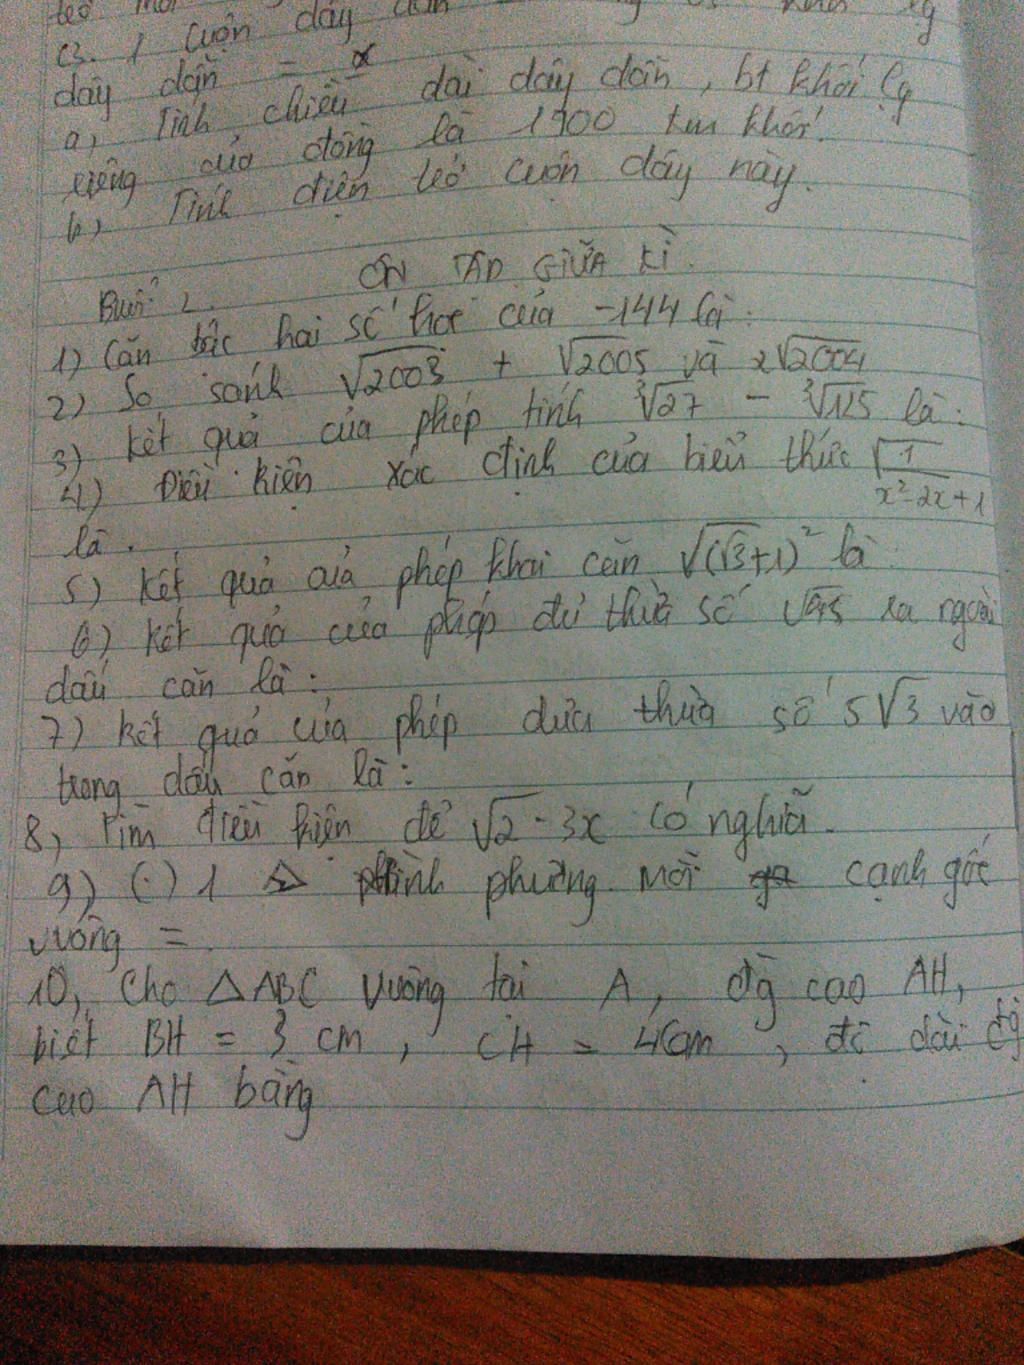 C3. 1 cuộn dây
dây dẫn =
a, Tính chiều dài dây dẫn, bt khối lg
riêng của đồng là 1900 km khối.
b) Tính điện trở cuộn dây này.
ÔN TẬP GIỮA KÌ.
Buổi 2.
1) Căn bậc hai số học của -144 là:
2) So sánh √2003 + √2005 và 2√2004
3) Kết quả của phép tính ∛27 - ∛125 là:
4) Điều kiện xác định của biểu thức √1/x²-2x+1
là.
5) Kết quả của phép khai căn √(√3+1)² là
6) Kết quả của phép đư thừa số √45 ra ngoài
dấu căn là:
7) Kết quả của phép đưa thừa số 5√3 vào
trong dấu căn là:
8, Tìm điều kiện để √2-3x có nghĩa.
9) (.) 1 Δ bình phương mỗi cạnh góc
vuông =
10, Cho △ABC vuông tại A, đg cao AH,
biết BH = 3 cm, CH = 4cm, độ dài đg
cao AH bằng